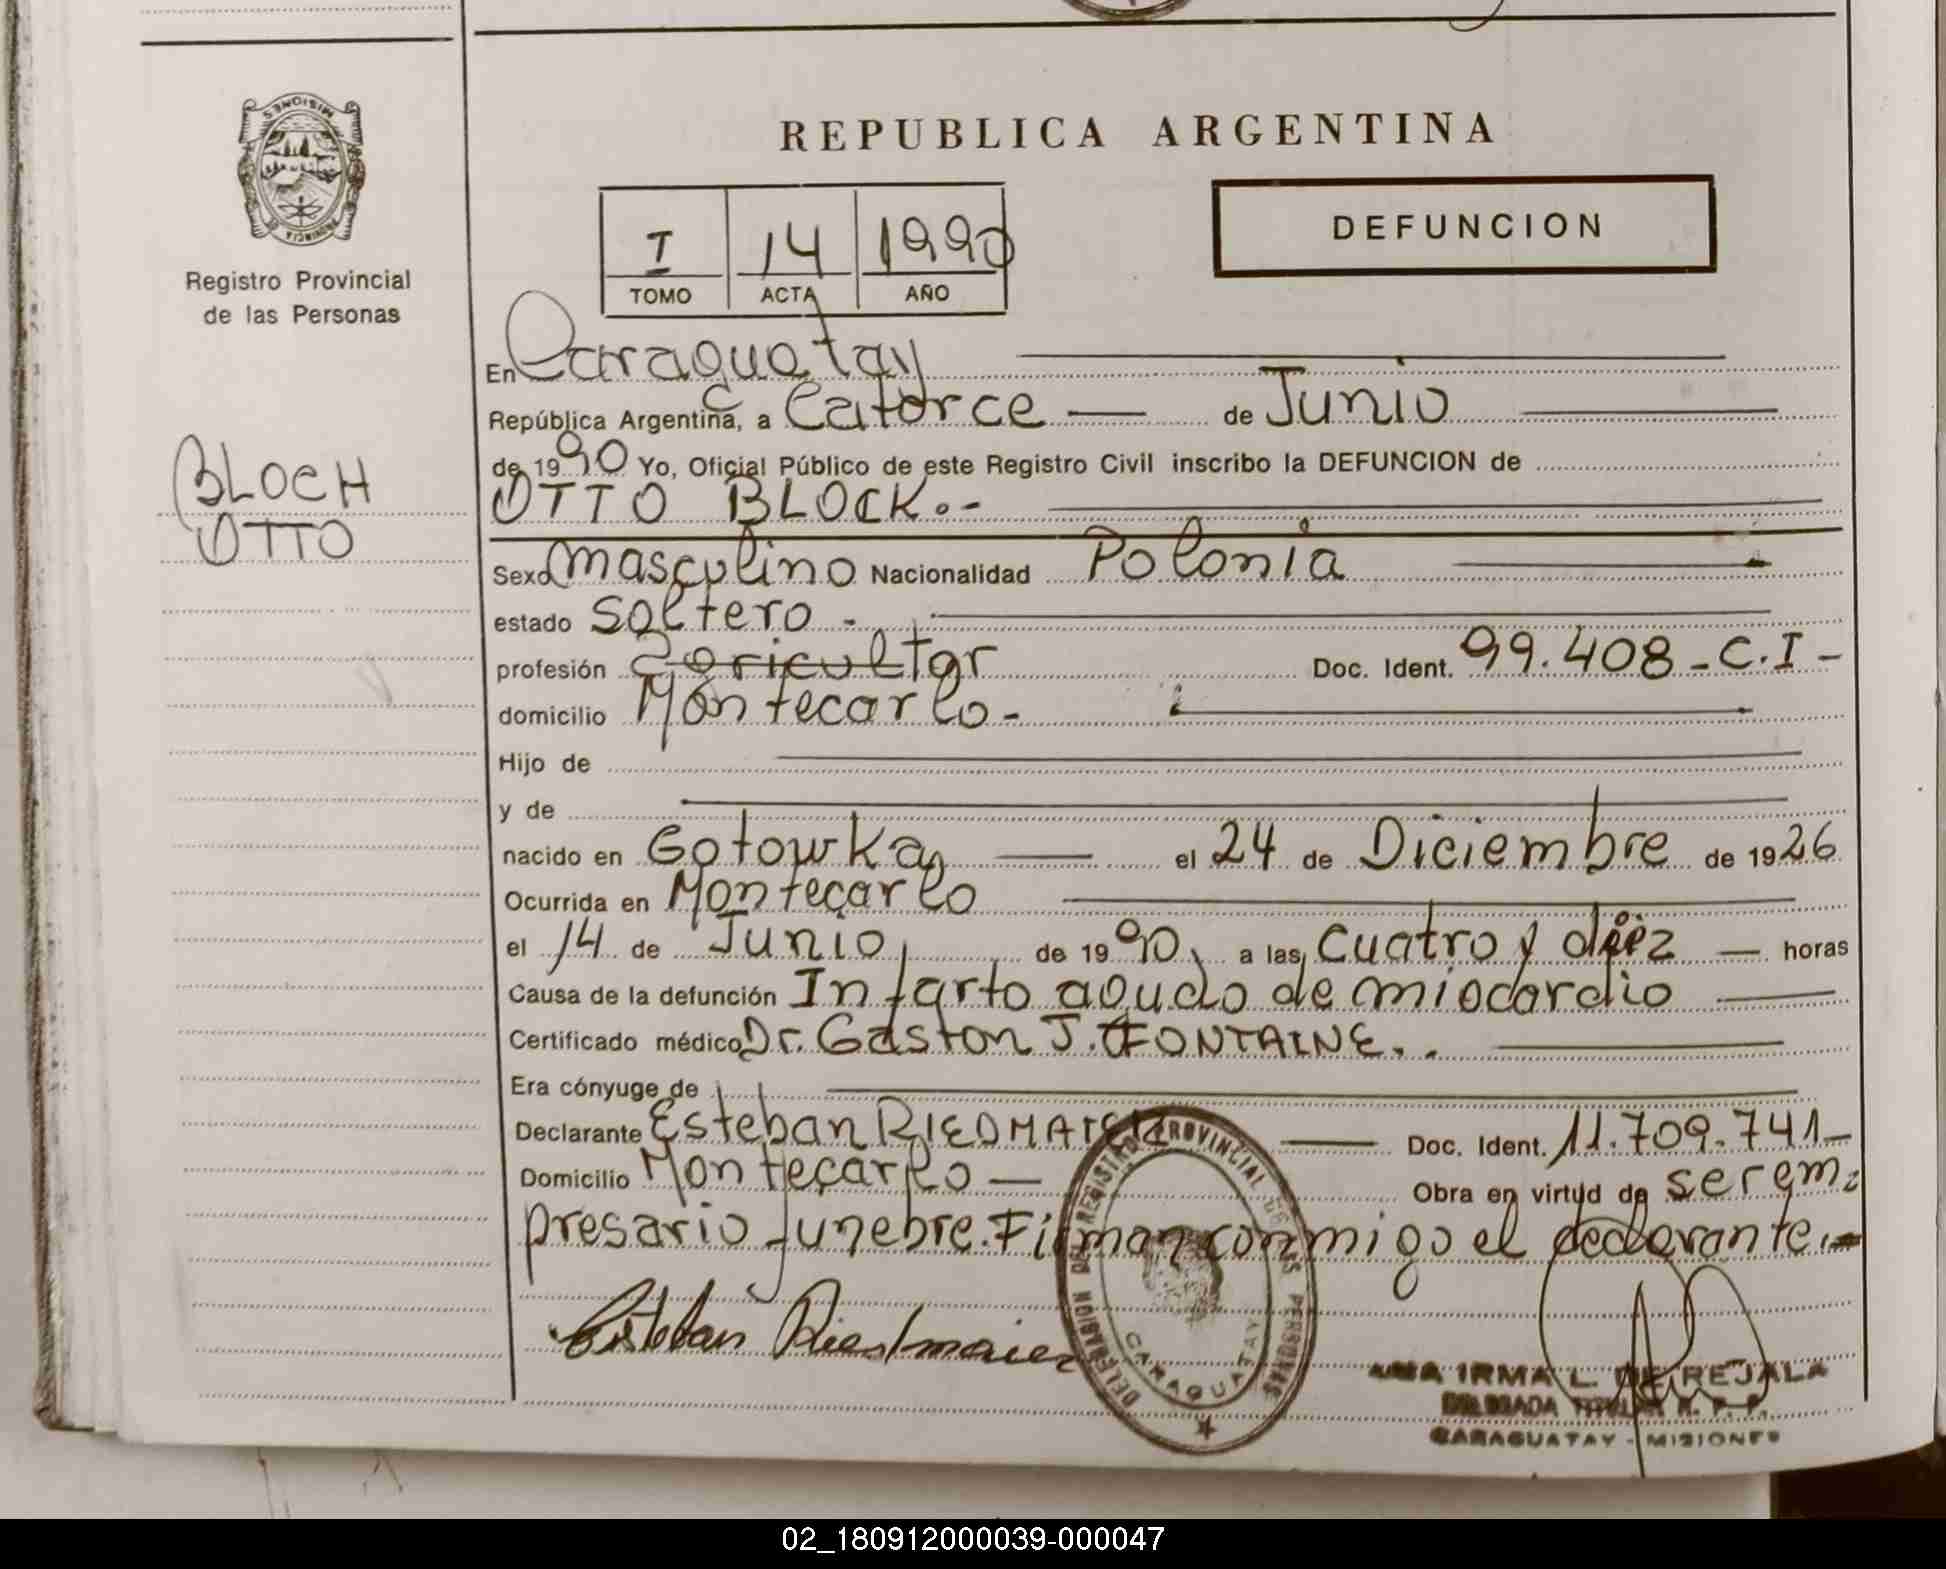 MISIONES
PROVINCIA DE
Registro Provincial
de las Personas
BLOCH
OTTO
REPUBLICA ARGENTINA
I 14 1990
TOMO ACTA AÑO
DEFUNCION
En Caraguatay
República Argentina, a Catorce de Junio
de 1990 Yo, Oficial Público de este Registro Civil inscribo la DEFUNCION de
OTTO BLOCK.-
Sexo masculino Nacionalidad Polonia
estado Soltero -
profesión agricultor Doc. Ident. 99.408 - C.I -
domicilio Montecarlo -
Hijo de
y de
nacido en Gotowka el 24 de Diciembre de 1926
Ocurrida en Montecarlo
el 14 de Junio de 1990 a las Cuatro y diez horas
Causa de la defunción Infarto agudo de miocardio
Certificado médico Dr. Gaston J. FONTAINE..
Era cónyuge de
Declarante Esteban RIEDMAIER Doc. Ident. 11.709.741-
Domicilio Montecarlo Obra en virtud de ser em-
presario funebre. Firman conmigo el declarante.-
Esteban Riedmaier
DELEGACIÓN DEL REGISTRO PROVINCIAL DE LAS PERSONAS
CARAGUATAY
ANA IRMA L. DE REJALA
DELEGADA TITULAR R. P. P.
CARAGUATAY - MISIONES
02_180912000039-000047